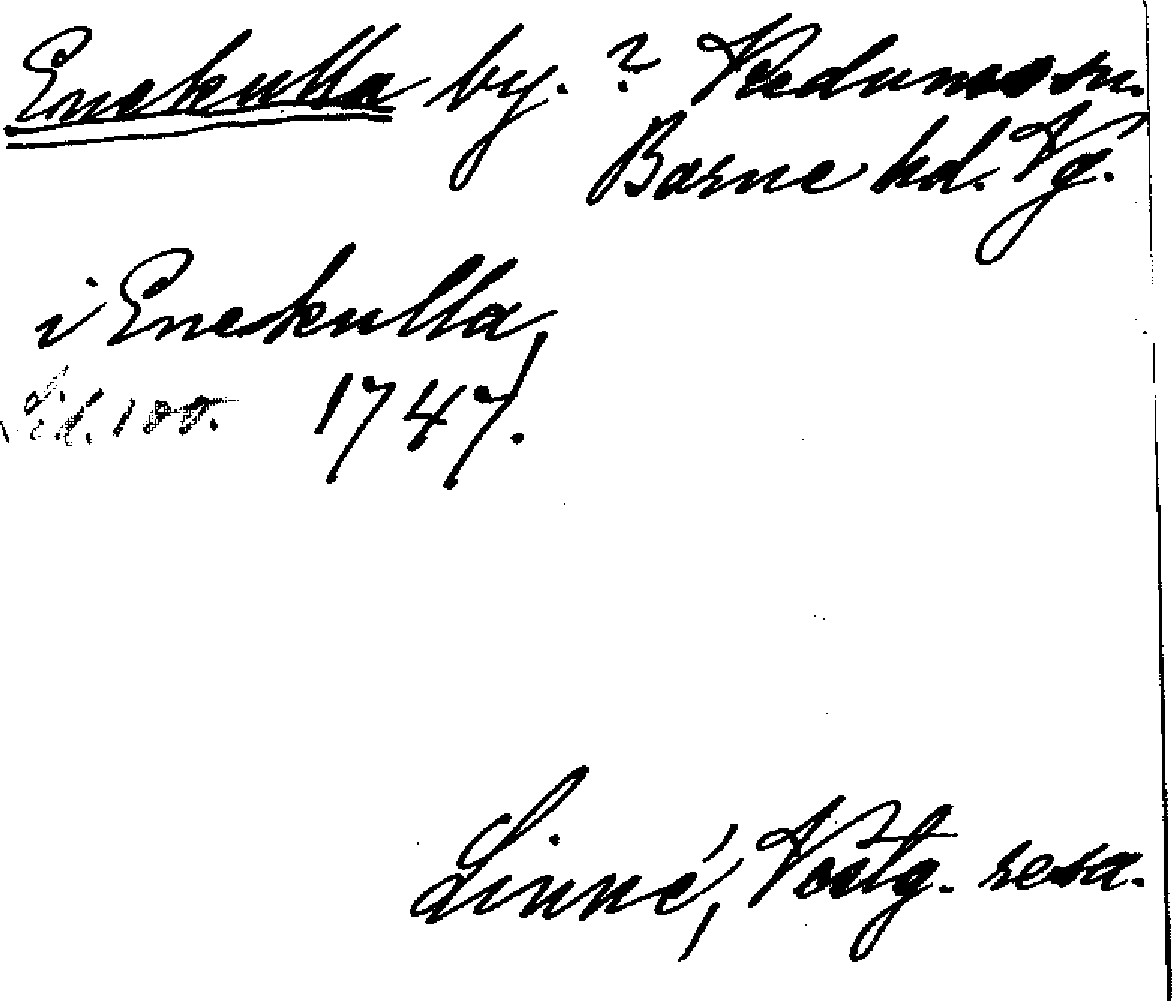 Enekulla by. ? Vedums sn.
Barne hd. Vg.
i Enekulla,
Sid. 100. 1747.
Linné, Västg. resa.